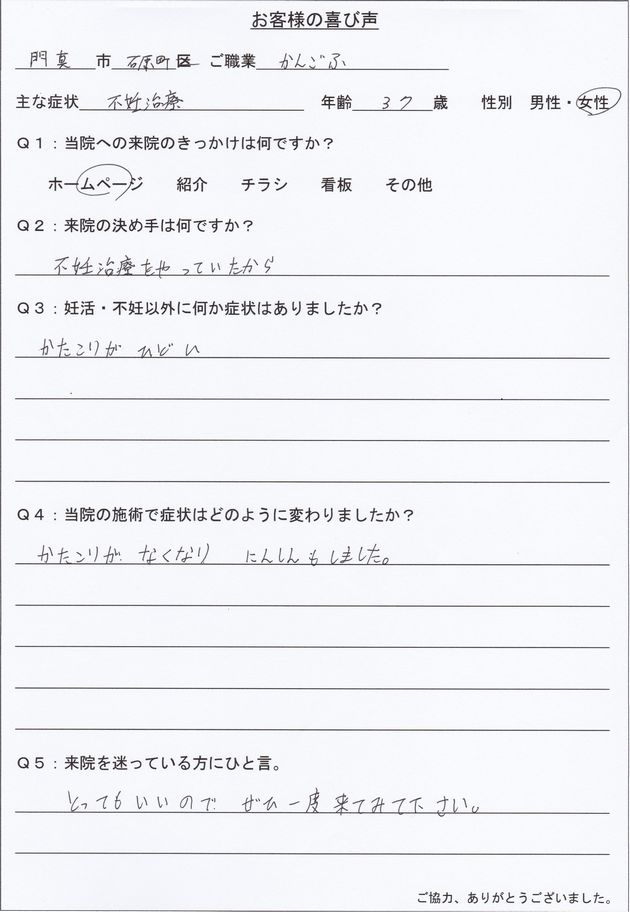 お客様の喜び声
門真 市 石原町区 ご職業 かんごふ
主な症状 不妊治療 年齢 37 歳 性別 男性・女性
Q1：当院への来院のきっかけは何ですか？
ホームページ 紹介 チラシ 看板 その他
Q2：来院の決め手は何ですか？
不妊治療をやっていたから
Q3：妊活・不妊以外に何か症状はありましたか？
かたこりが ひどい
Q4：当院の施術で症状はどのように変わりましたか？
かたこりが なくなり にんしんも しました。
Q5：来院を迷っている方にひと言。
とってもいいので ぜひ 一度 来てみて下さい。
ご協力、ありがとうございました。